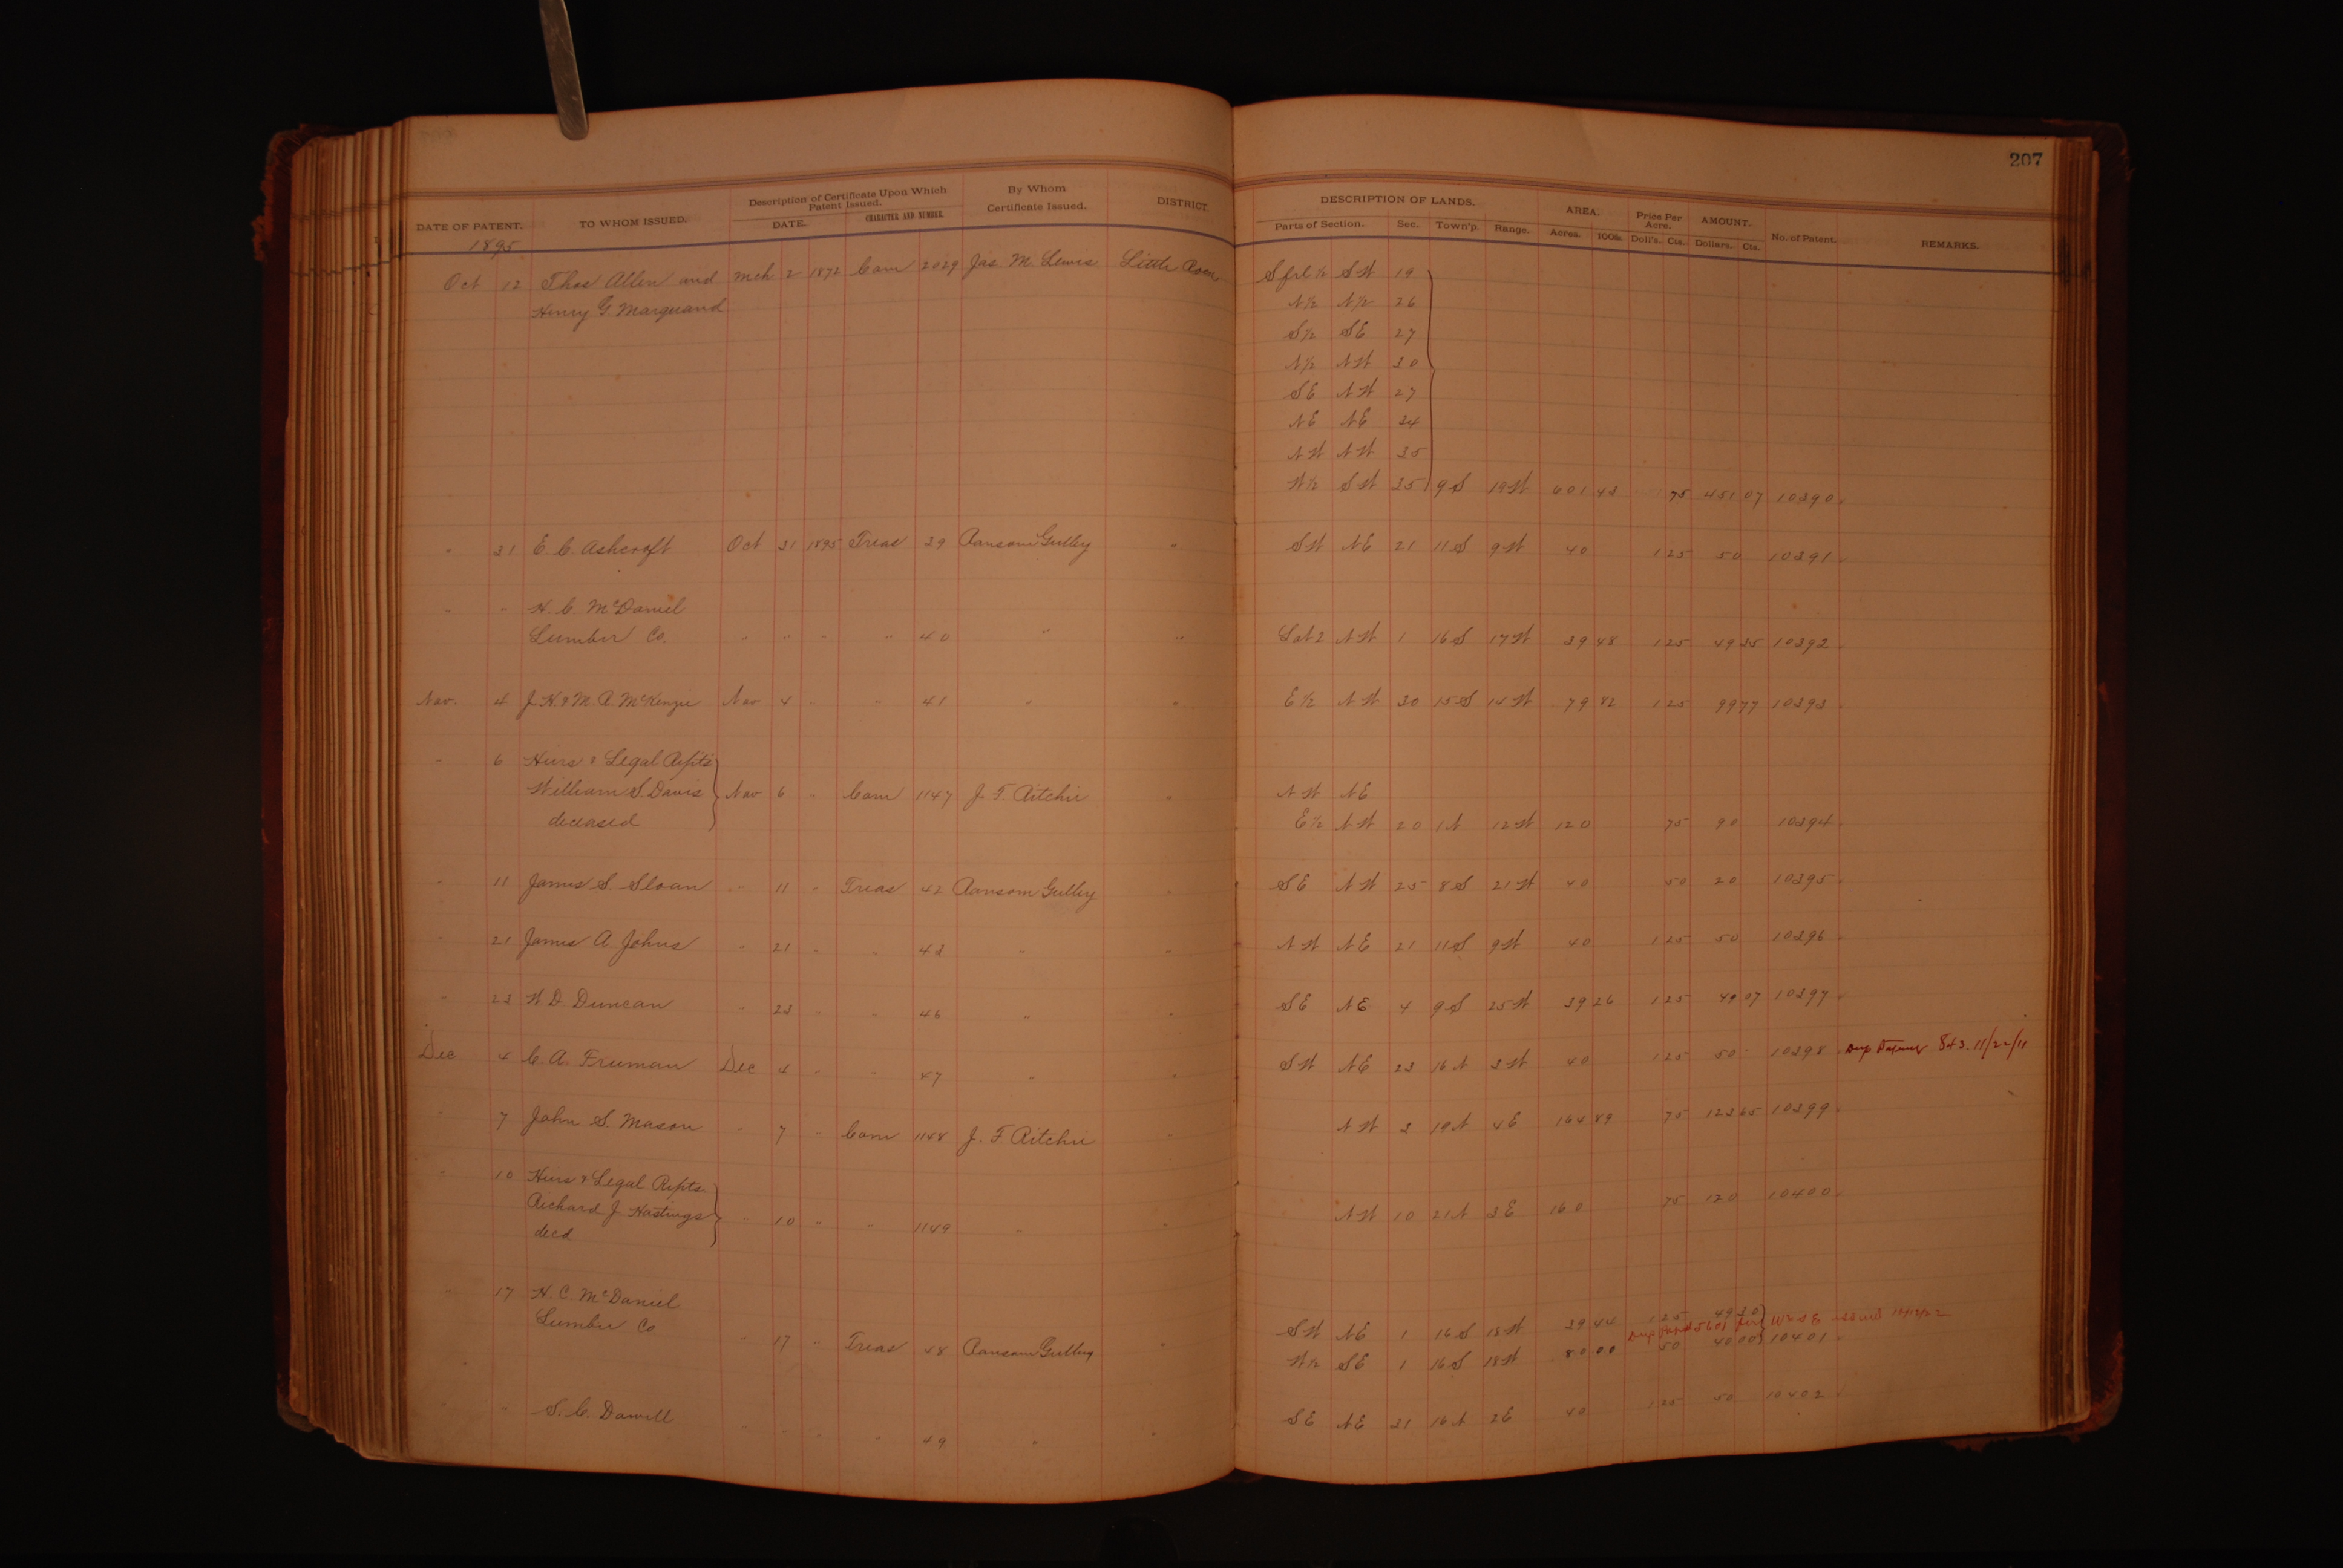 207
DATE OF PATENT. TO WHOM ISSUED. Description of Certificate Upon Which Patent Issued. DATE. CHARACTER AND NUMBER. By Whom Certificate Issued. DISTRICT. DESCRIPTION OF LANDS. Parts of Section. Sec. Town'p. Range. AREA. Acres. 100ths. Price Per Acre. Doll's. Cts. AMOUNT. Dollars. Cts. No. of Patent. REMARKS.
1895
Oct 12 Thos Allen and Mch 2 1872 Com 2029 Jas. M. Lewis Little Rock S frl ½ SW 19
Henry G. Marquand N½ N½ 26
S½ SE 27
N½ NW 30
SE NW 27
NE NE 34
NW NW 35
W½ SW 35 9S 19W 601 43 75 451 07 10390
" 31 E. C. Ashcroft Oct 31 1895 Treas 39 Ransom Gulley " SW NE 21 11S 9W 40 1 25 50 10391
" " H. C. McDaniel
Lumber Co. " " " " 40 " " Lot 2 NW 1 16S 17W 39 48 1 25 49 35 10392
Nov. 4 J. H. & M. A. McKenzie Nov 4 " " 41 " " E½ NW 30 15S 14W 79 82 1 25 99 77 10393
" 6 Heirs & Legal Repts
William S. Davis Nov 6 " Com 1147 J. F. Ritchie " NW NE
deceased E½ NW 20 1N 12W 120 75 90 10394
" 11 James S. Sloan " 11 " Treas 42 Ransom Gulley " SE NW 25 8S 21W 40 50 20 10395
" 21 James A. Johns " 21 " " 43 " " NW NE 21 11S 9W 40 1 25 50 10396
" 23 W. D. Duncan " 23 " " 46 " " SE NE 4 9S 25W 39 26 1 25 49 07 10397
Dec 4 C. A. Freeman Dec 4 " " 47 " " SW NE 23 16N 3W 40 1 25 50 10398 843. 11/22/11
" 7 John S. Mason " 7 " Com 1148 J. F Ritchie " NW 3 19N 4E 164 89 75 123 65 10399
" 10 Heirs & Legal Repts
Richard J. Hastings " 10 " " 1149 " NW 10 21N 3E 160 75 120 10400
decd
" 17 H. C. McDaniel
Lumber Co " 17 " Treas 48 Ransom Gulley SW NE 1 16S 18W 39 44 1 25 49 30
W½ SE 1 16S 18W 80 00 50 40 00 10401
" S. C. Dowell " " " " 49 " " SE NE 31 16N 2E 40 1 25 50 10402